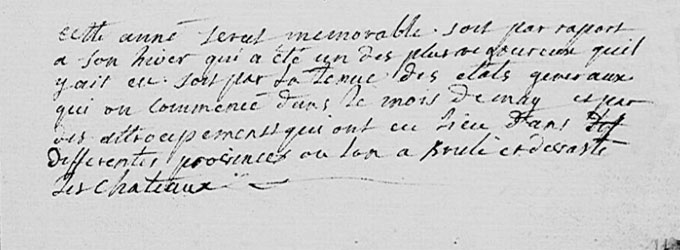 cette anné serat memorable. soit par raport
a son hiver qui a été un des plus rigoureux quil
y ait eu. soit par la tenue des etats generaux
qui on commencé dans le mois de may et par
des attroupements qui ont eu lieu dans
differentes provinces ou lon a brulé et devasté
les chateaux